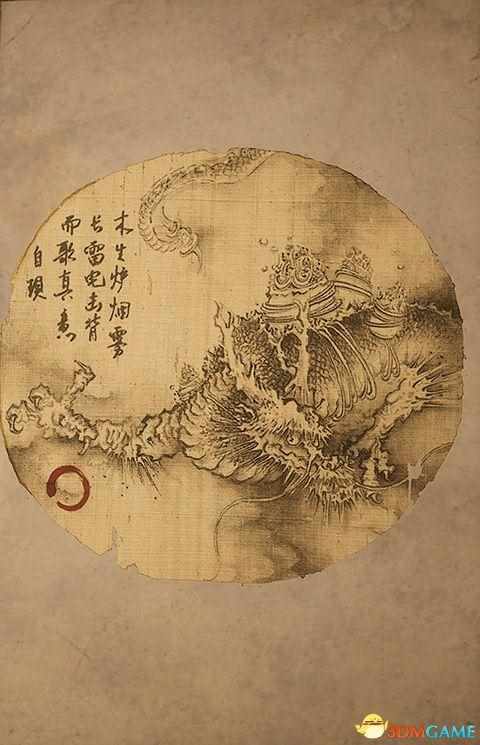 木生炉烟雾
长雷电击背
而歌真意
自琐
3DMGAME